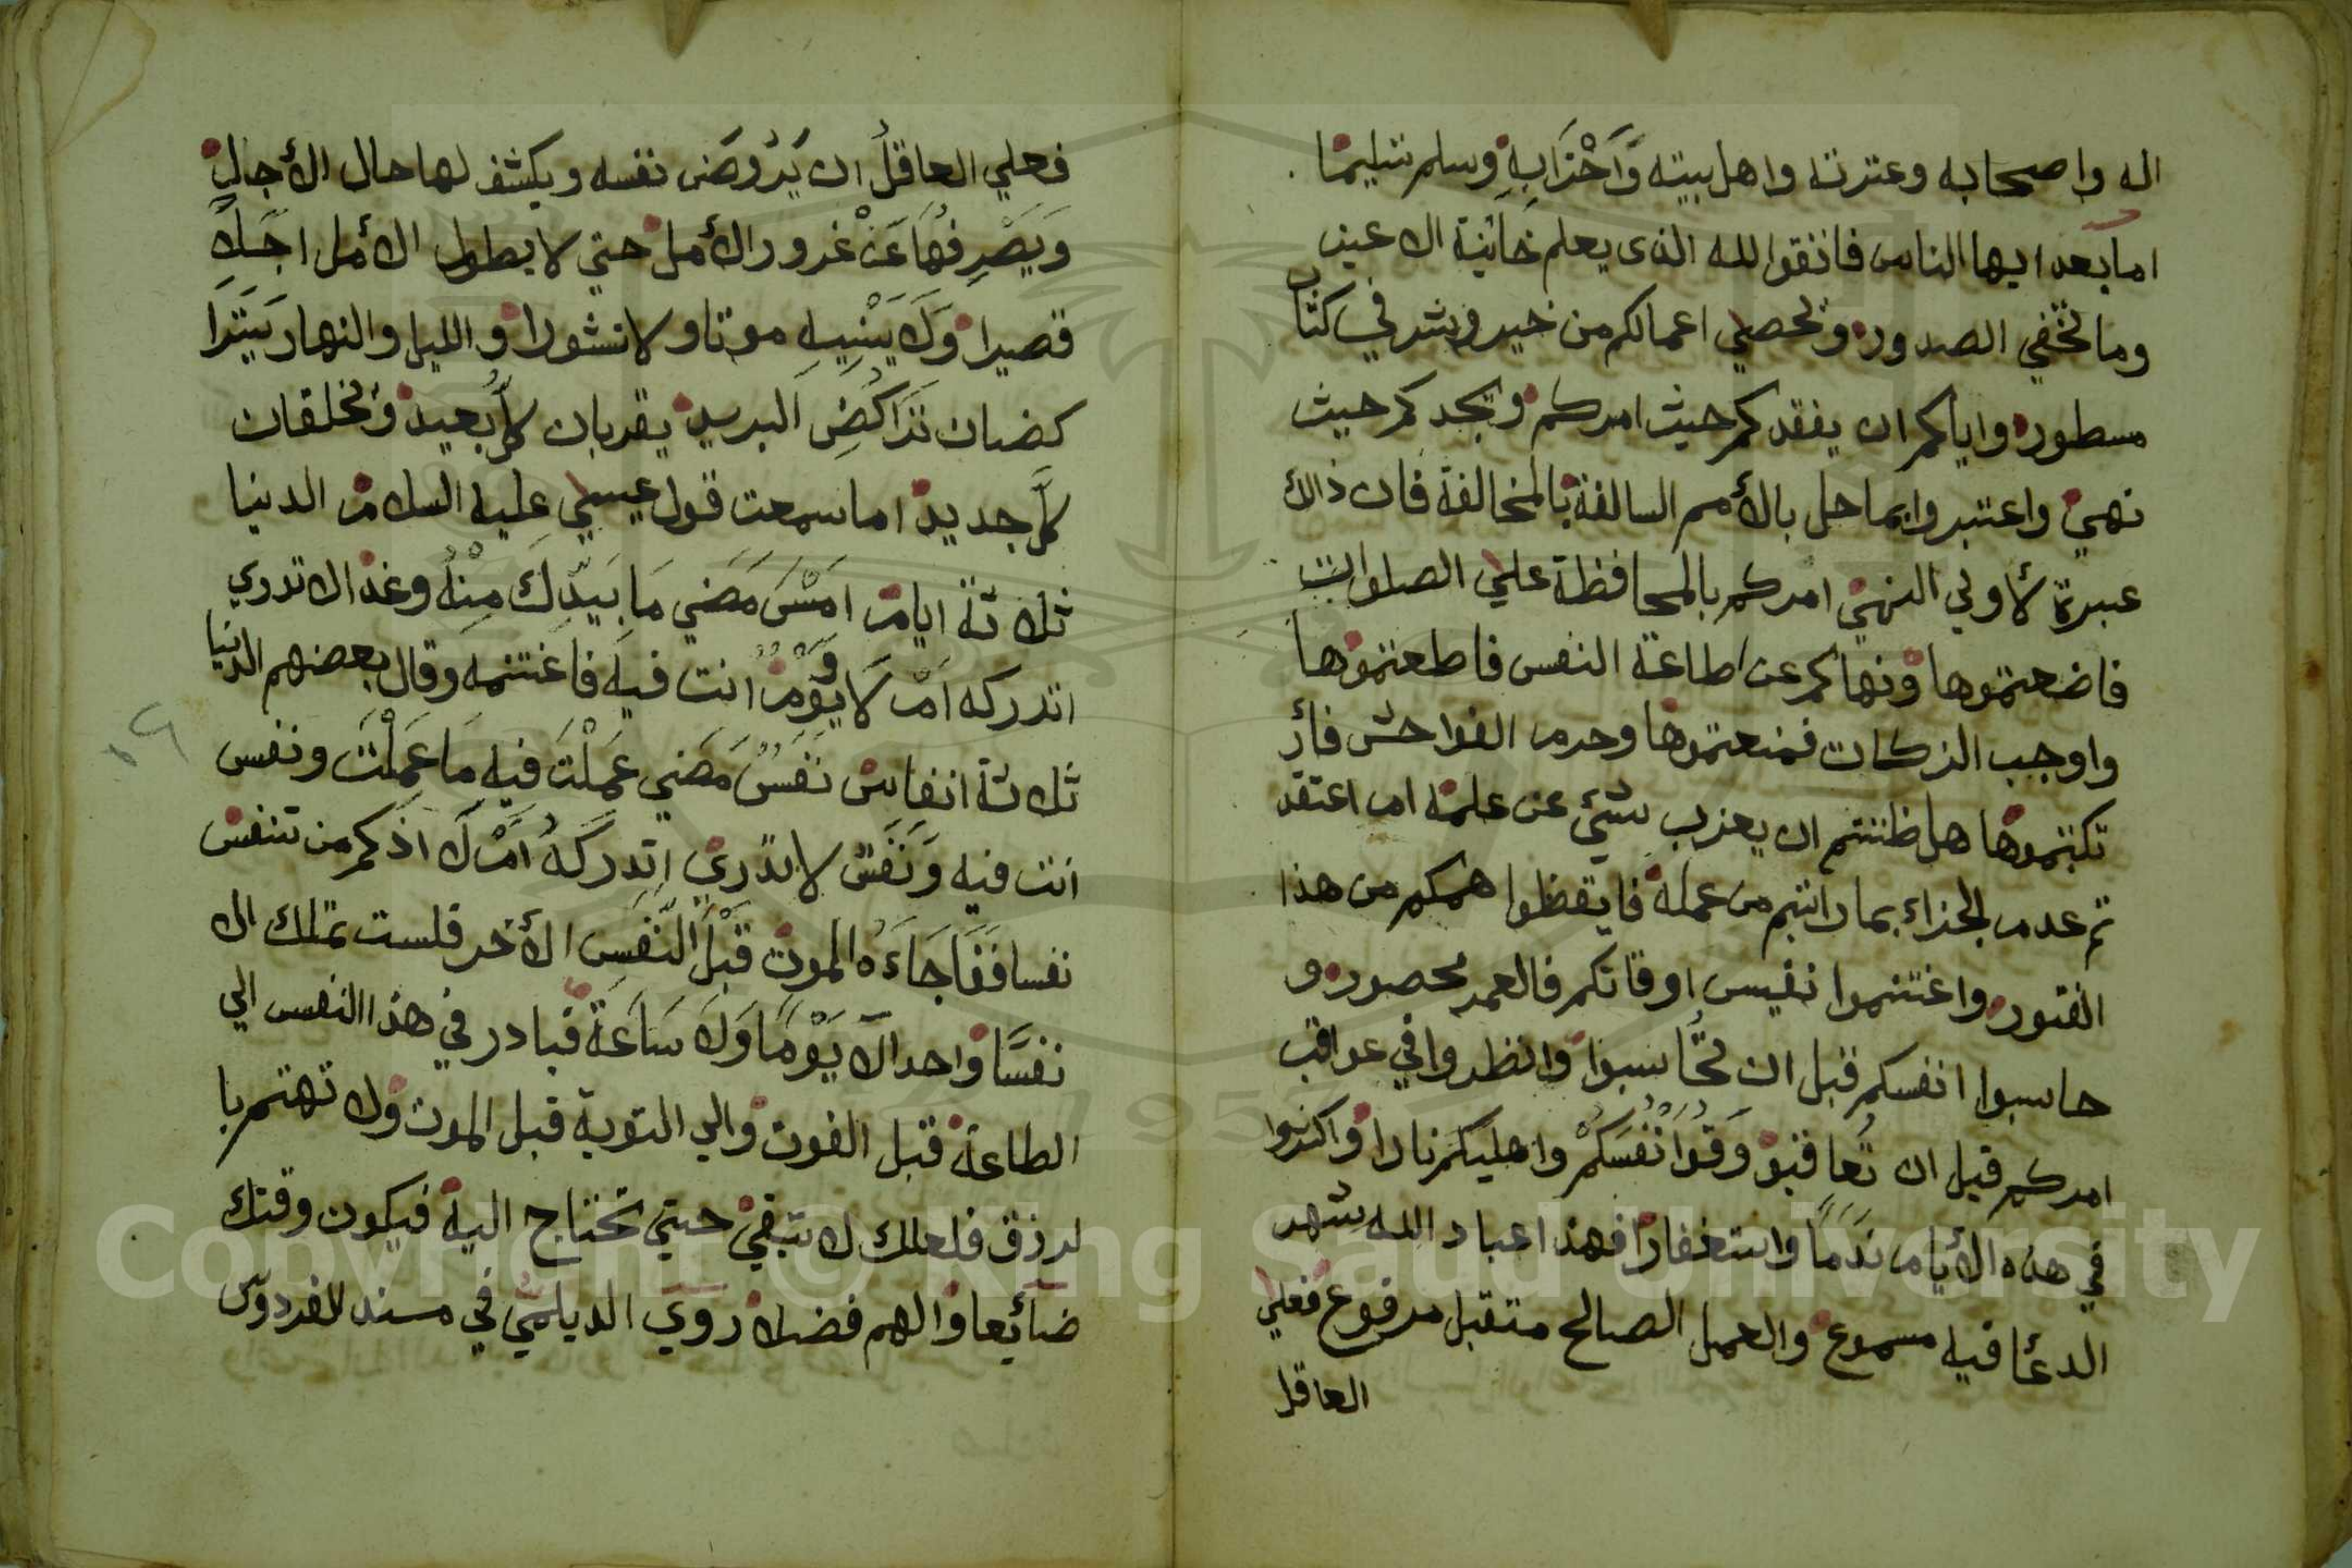 اله واصحابه وعترته واهل بيته وَّاَحْزَابِهِ وسلم تسليما
اما بعد ايها الناس فاتقوا لله الذى يعلم خائنة الاعين
وما تخفي الصدور ونحصي اعمالكم من خير وشر في كتاب
مسطور واياكم ان يفقدكم حيث امركم ويجدكم حيث
نهي واعتبروا بما حل بالأمم السالفة بالمخالفة فان ذالك
عبرة لأولي النهي امركم بالمحافظة علي الصلوات
فاضعتموها ونهاكم عن اطاعة النفس فاطعتموها
واوجب الزكات فمنعتموها وحرم الفواحش فأر
تكبتموها هل ظننتم ان يعزب شيئ عن علمه ام اعتقد
تم عدم الجزاء بما راتبتم من عمله فايقظوا هممكم من هذا
الفتور واغتنموا نفيس اوقاتكم فالعمر محصور و
حاسبوا انفسكم قبل ان تحُاسبوا وانظروا في عواقب
امركم قبل ان تُعاقبو وَقُوا اَنْفُسَكُمْ واهليكم نارا واكثروا
في هذه الأيام نَدَمًا واستغفارا فهذا عباد الله شهر
الدعا فيه مسموع والعمل الصالح متقبل مرفوع فعلي
العاقل
فعلي العاقلُ ان يَرُوضَ نفسه ويكشف لها حال الأجال
وَيَصْرِفُهَا عَنْ غرور الأمل حتي لا يطول الأمل اجَلاً
قصيرا وَلَا يَنْسِيهِ موتا ولا نشورا والليل والنهار يَتَرَا
كضان تَرَاكُضِ البريد يقربان كلَّ بُعيد ويخلقان
كلَّ جديد اما سمعت قول عيسي عليه السلام الدنيا
ثلاثة ايام امْسَ مَضَي مَا بَيَدِكَ مِنْهُ وغدا لا تدري
اتدركه اَمْ لَا وَيَوْمٌ انت فيه فاغتنمه وقال بعضهم الدنيا
ثلاثة انفاس نَفَسٌ مَضَي عَمِلْتَ فيه مَا عَمِلْتَ ونفس
انت فيه وَنَفَسٌ لا تدري اتدركهُ اَمْ لَا اذ كم من تنفس
نفسا فَفَاجَاَءَهُ الموت قَبْلَ النَّفَسِ الأخر فلست تملك الا
نفسًا واحدا لَا يَوْمًا وَلَا سَاعَةً فبادر في هذا النفس الي
الطاعة قبل الفوت والي التوبة قبل الموت ولا تهتم با
لرزق فلعلك لا تبقي حتي تحتاج اليه فيكون وقتك
ضائعا والهم فضلا روي الديلمي في مسند الفردوس